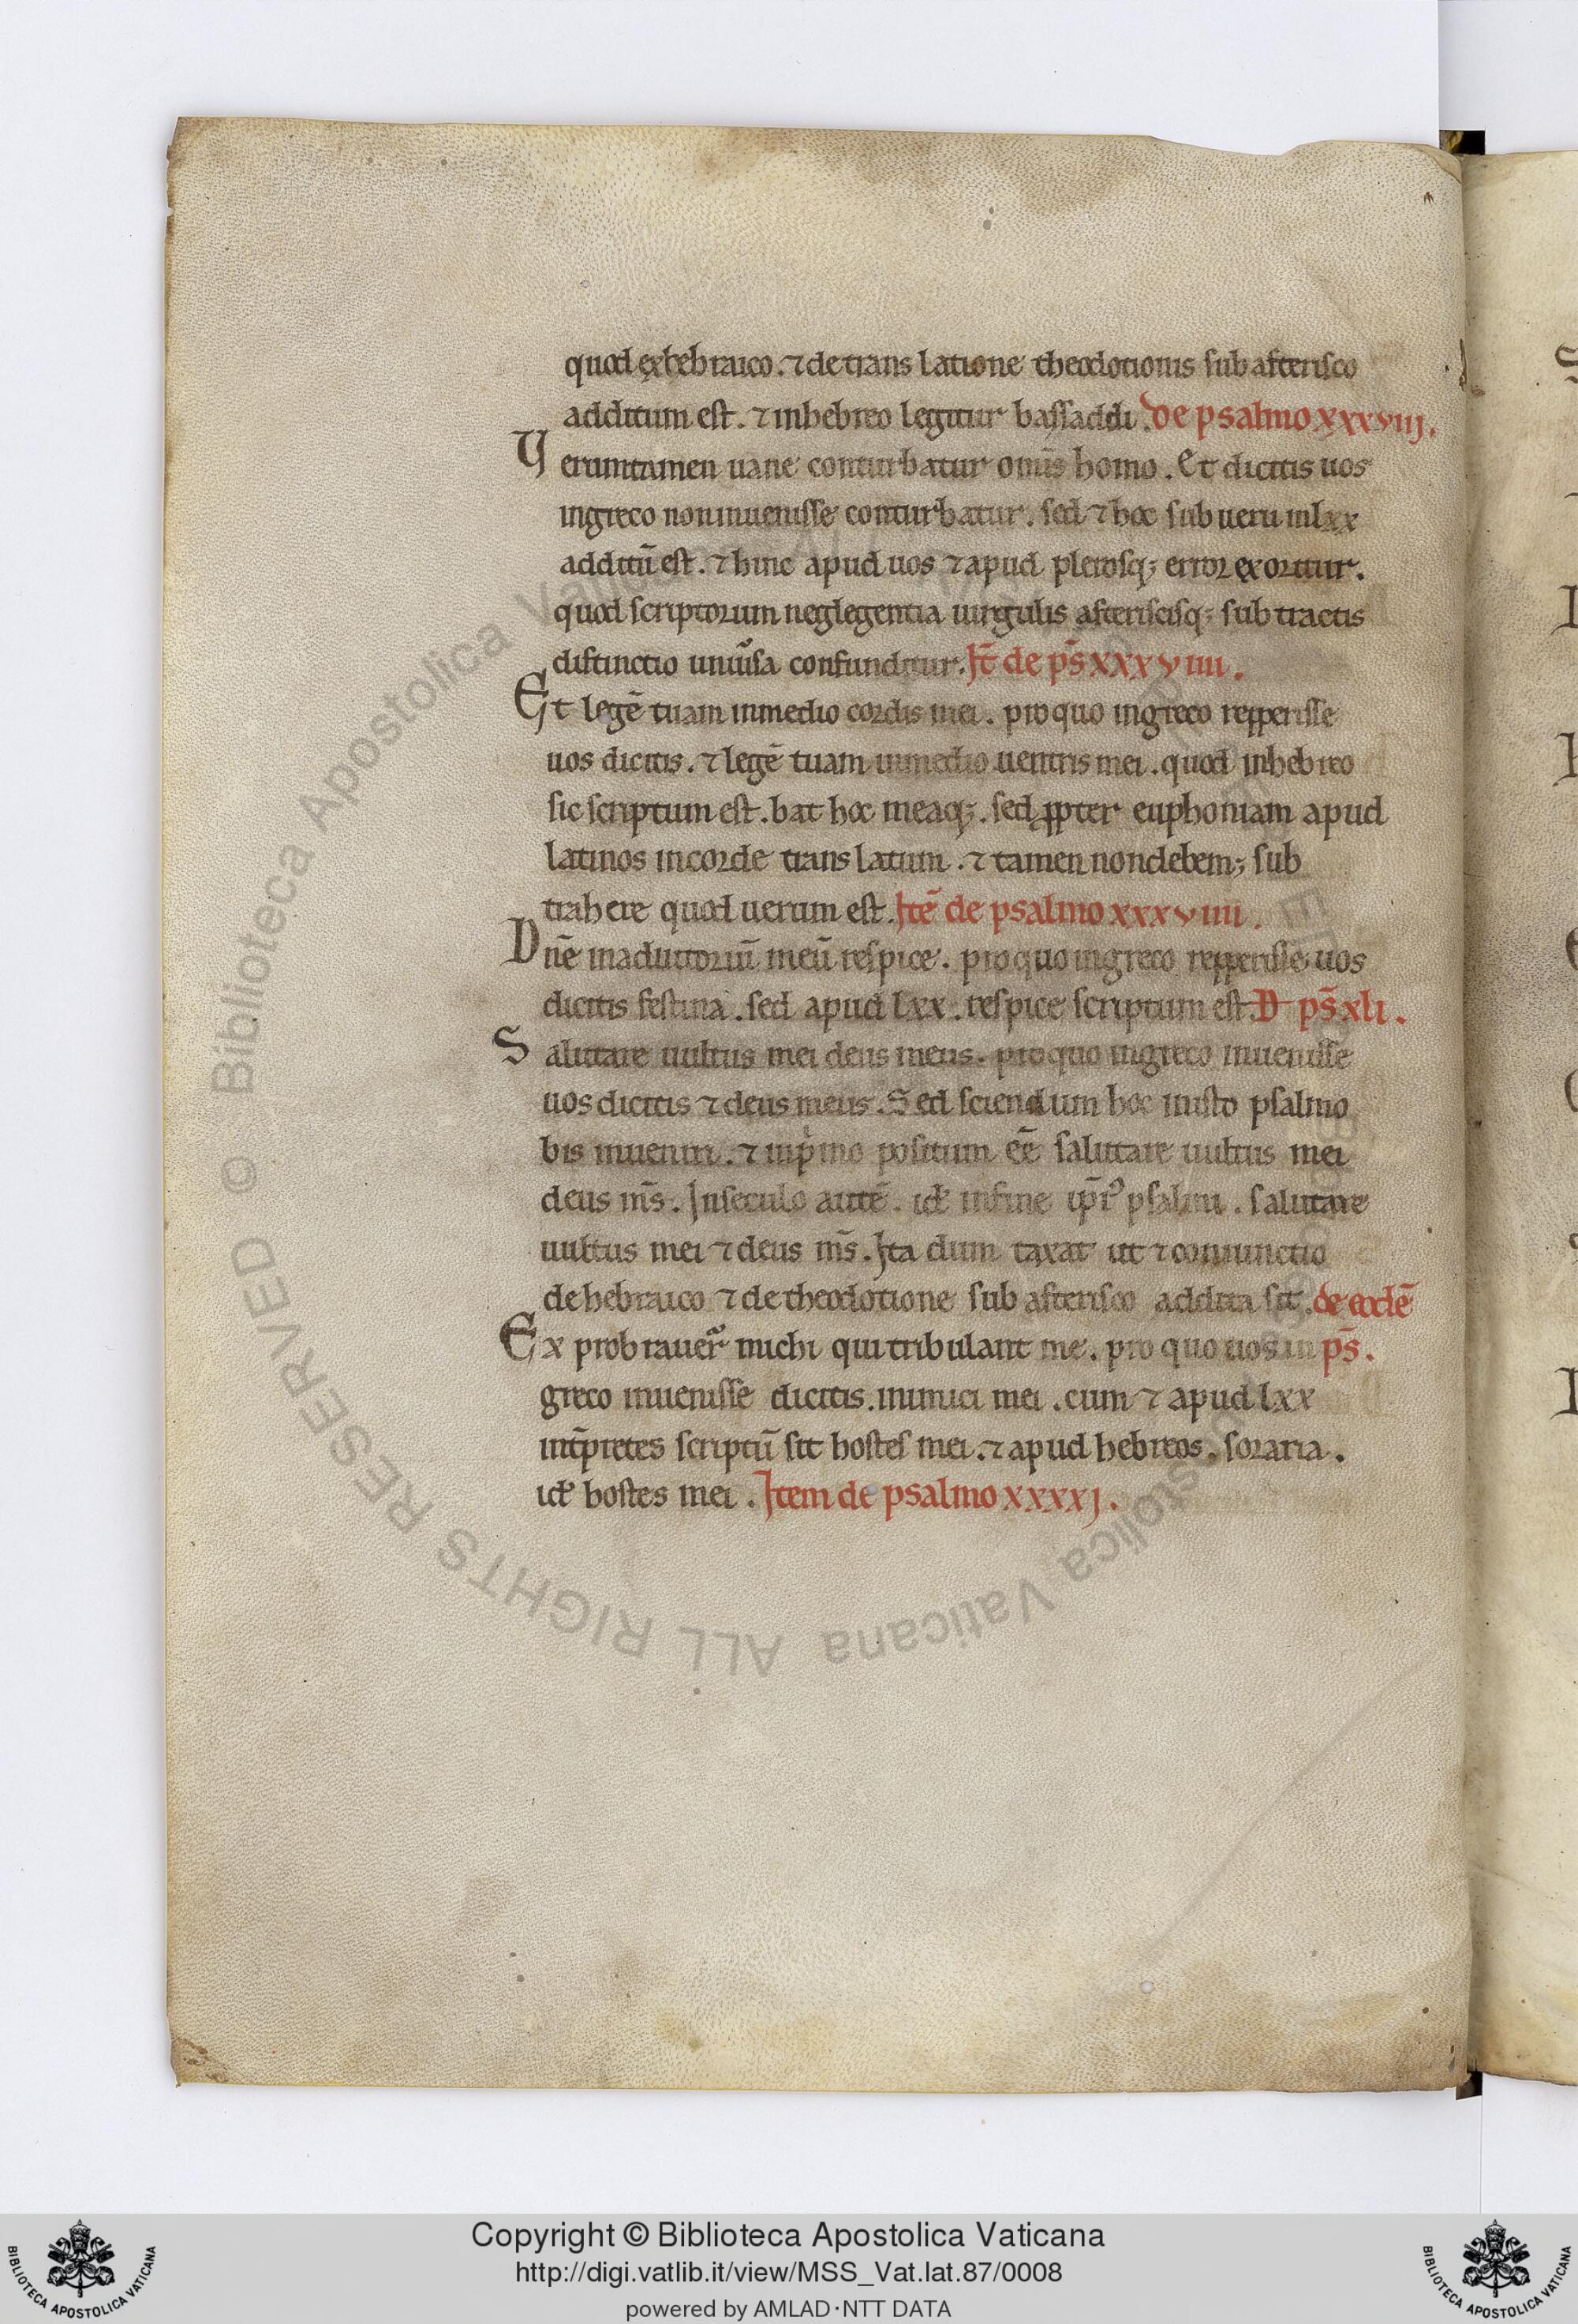 quod ęxhebraico. ⁊ de translatione theodotionis sub asterisco
additum est. ⁊ inhebreo legitur bassaddi. De psalmo xxxviij.
Verumtamen uane conturbatur omīs homo. Et dicitis uos
ingreco noninuenisse conturbatur. sed ⁊ hoc sub ueru inlxx
additū est. ⁊ hinc apud uos ⁊ apud plerosq; error ęxoritur.
quod scriptorum neglegentia uirgulis asteriscisq; subtractis
distinctio uniūsa confunditur. It̄ de ps̄ xxxviiii.
Et legē tuam inmedio cordis mei. pro quo ingreco repperisse
uos dicitis. ⁊ legē tuam inmedio uentris mei. quod inhebreo
sic scriptum est. bat hoc meaq;. sed ꝓpter euphoniam apud
latinos incorde translatum. ⁊ tamen nondebem; sub
trahere quod uerum est. Itē de psalmo xxxviiii.
Dn̄e inadiutoriū meū respice. pro quo ingreco repperisse uos
dicitis festina. sed apud lxx. respice scriptum est. D ps̄ xli.
Salutare uultus mei deus meus. pro quo ingreco inuenisse
uos dicitis ⁊ deus meus. Sed sciendum hoc inisto psalmo
bis inueniri. ⁊ inpͥmo positum eē salutare uultus mei
deus m̄s. Inseculo autē. id ē infine ip̄iꝰ psalmi. salutare
uultus mei ⁊ deus m̄s. Ita dum taxat ut ⁊ coniunctio
dehebraico ⁊ de theodotione sub asterisco addita sit. de eodē
Ex probrauer̄ michi qui tribulant me. pro quo uos in ps̄.
greco inuenisse dicitis. inimici mei. cum ⁊ apud lxx
int̄pretes scriptū sit hostes mei. ⁊ apud hebreos. soraria.
id ē hostes mei. Item de psalmo xxxxj.
Copyright © Biblioteca Apostolica Vaticana
http://digi.vatlib.it/view/MSS_Vat.lat.87/0008
powered by AMLAD·NTT DATA